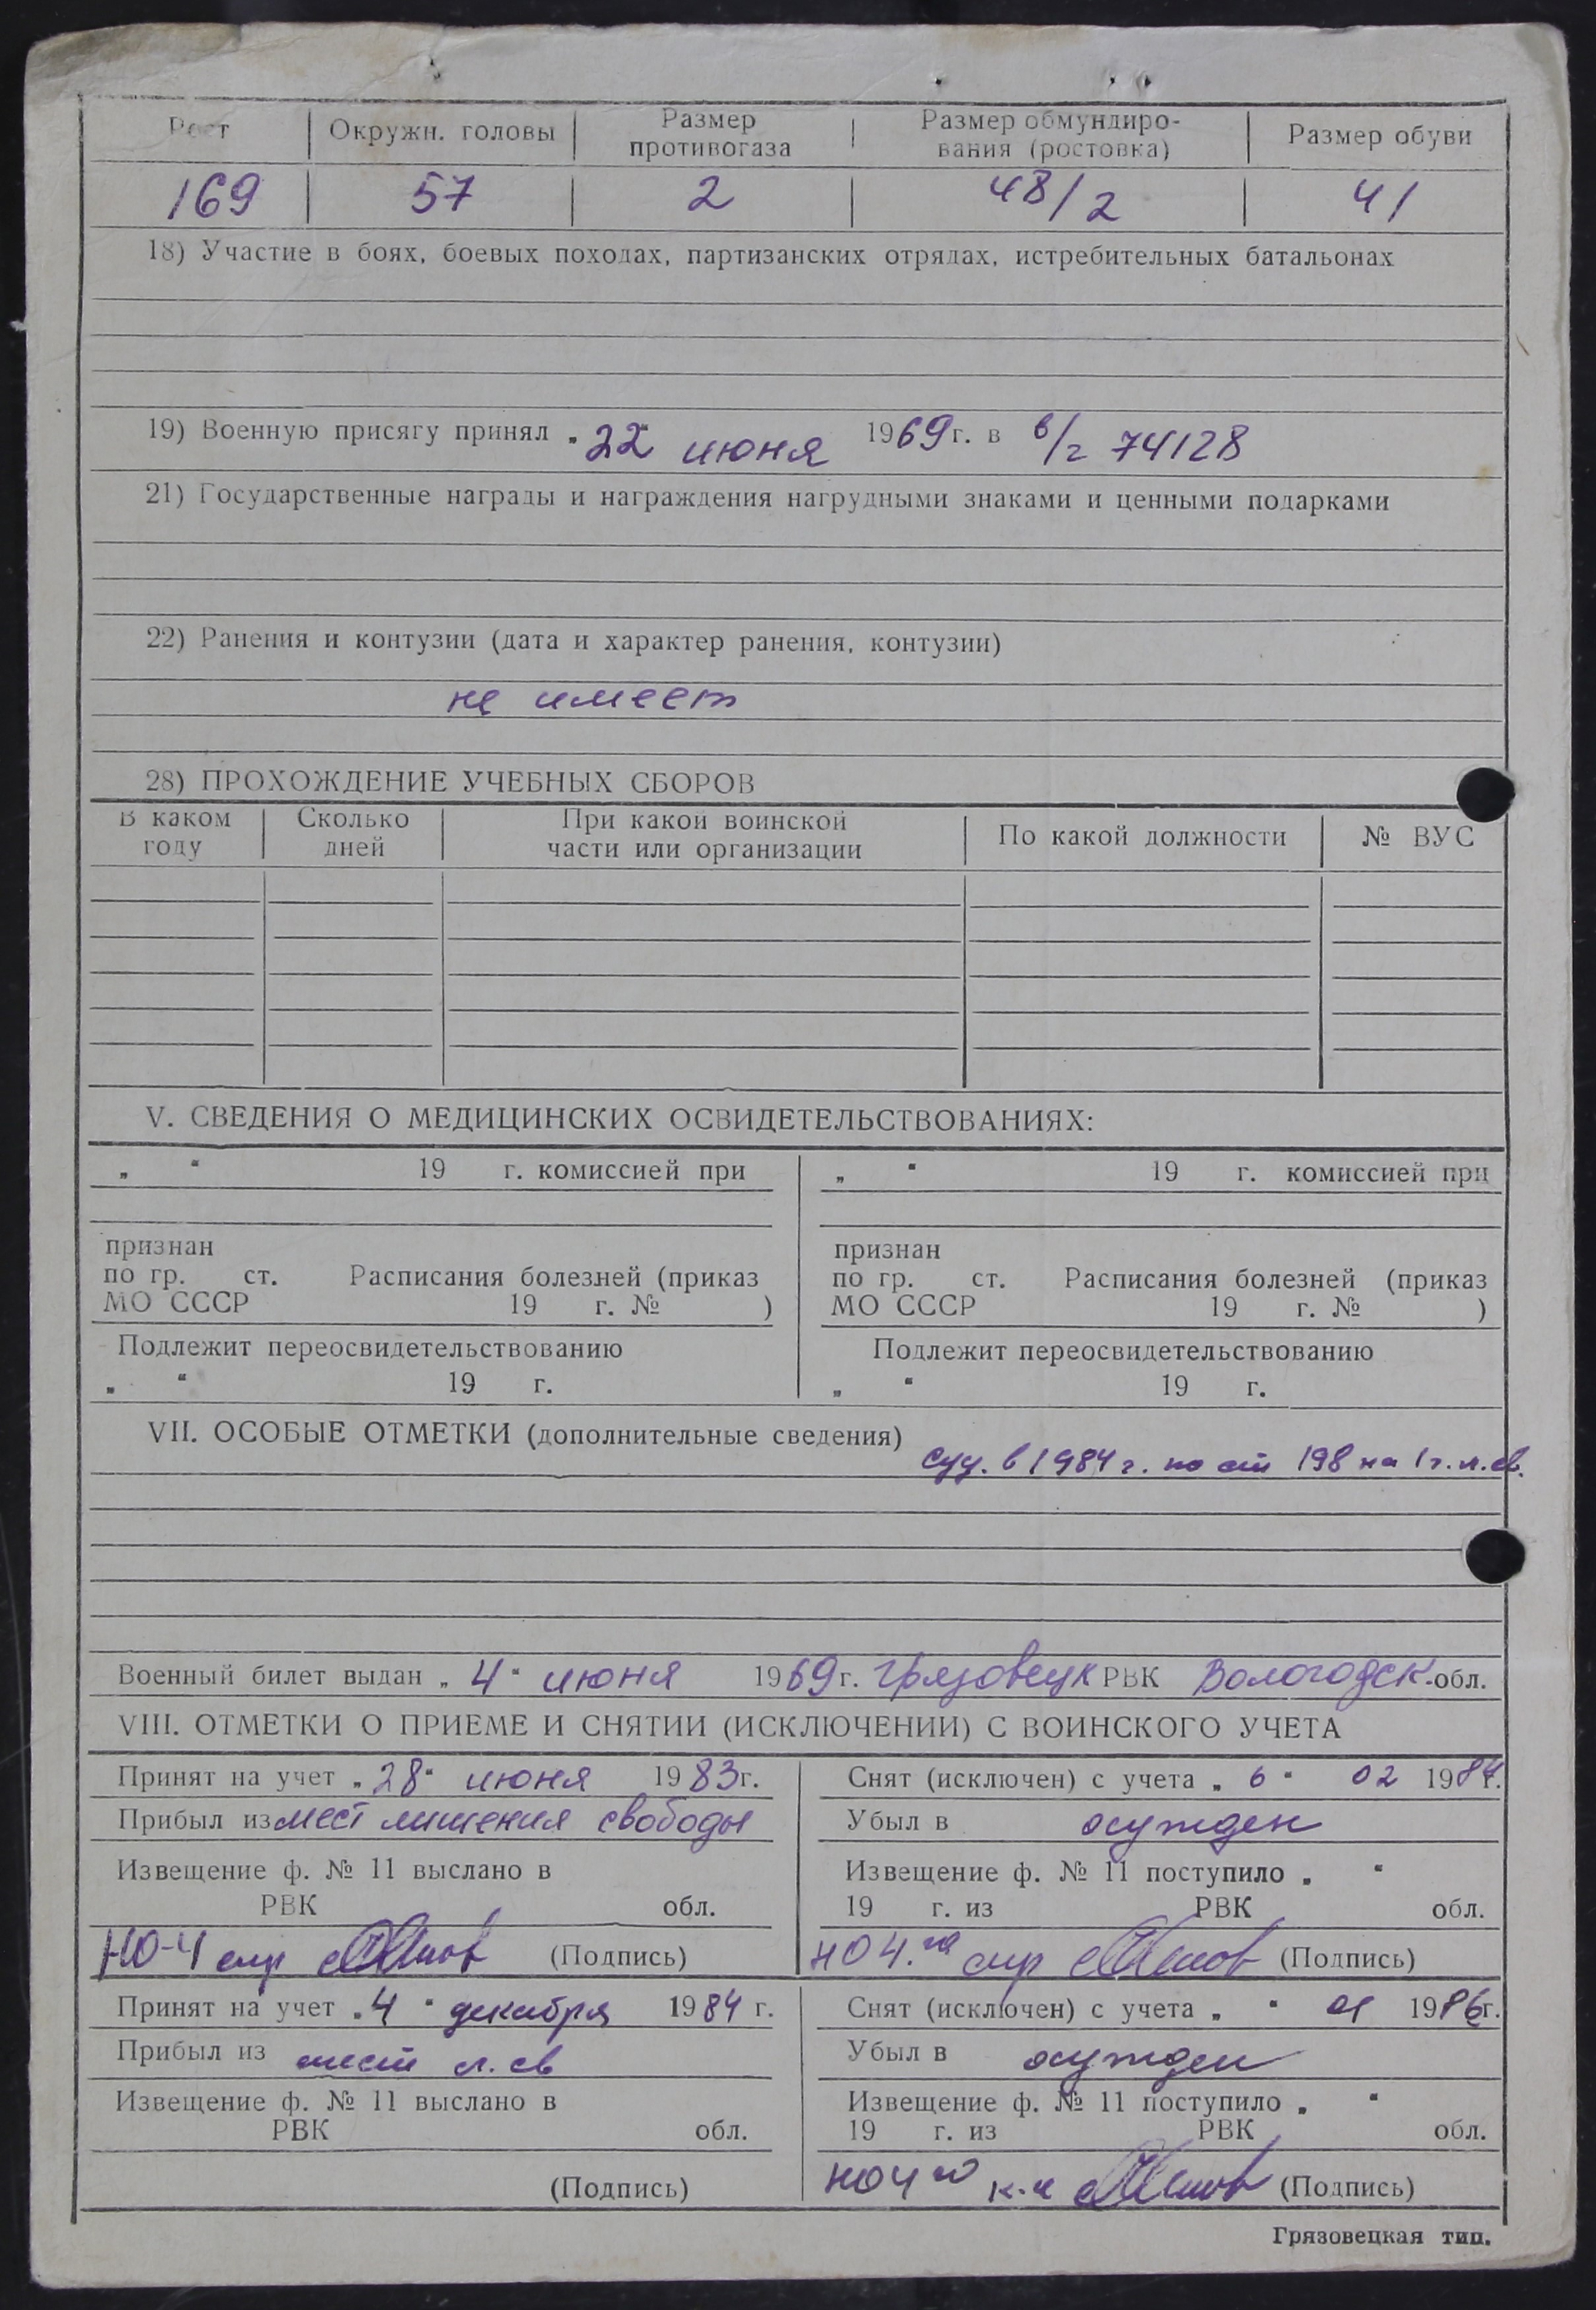 Рост Окружн. головы Размер противогаза Размер обмундиро-вания (ростовка) Размер обуви
169 57 2 48/2 41
18) Участие в боях, боевых походах, партизанских отрядах, истребительных батальонах
19) Военную присягу принял „22“ июня 1969 г. в в/г 74128
21) Государственные награды и награждения нагрудными знаками и ценными подарками
22) Ранения и контузии (дата и характер ранения, контузии)
не имеет
28) ПРОХОЖДЕНИЕ УЧЕБНЫХ СБОРОВ
В каком году Сколько дней При какой воинской части или организации По какой должности № ВУС
V. СВЕДЕНИЯ О МЕДИЦИНСКИХ ОСВИДЕТЕЛЬСТВОВАНИЯХ:
„ “ 19 г. комиссией при
признан
по гр. ст. Расписания болезней (приказ
МО СССР 19 г. № )
Подлежит переосвидетельствованию
„ “ 19 г.
„ “ 19 г. комиссией при
признан
по гр. ст. Расписания болезней (приказ
МО СССР 19 г. № )
Подлежит переосвидетельствованию
„ “ 19 г.
VII. ОСОБЫЕ ОТМЕТКИ (дополнительные сведения)
суд. в 1984 г. по ст 198 на 1 г. л. св.
Военный билет выдан „4“ июня 1969 г. Грязовецк РВК Вологодск. обл.
VIII. ОТМЕТКИ О ПРИЕМЕ И СНЯТИИ (ИСКЛЮЧЕНИИ) С ВОИНСКОГО УЧЕТА
Принят на учет „28“ июня 1983 г.
Прибыл из мест лишения свободы
Извещение ф. № 11 выслано в
РВК обл.
НО-4 (Подпись)
Снят (исключен) с учета „6“ 02 1984 г.
Убыл в осужден
Извещение ф. № 11 поступило „ “
19 г. из РВК обл.
НО4 (Подпись)
Принят на учет „4“ декабря 1984 г.
Прибыл из мест л. св
Извещение ф. № 11 выслано в
РВК обл.
(Подпись)
Снят (исключен) с учета „ “ 01 1986 г.
Убыл в осужден
Извещение ф. № 11 поступило „ “
19 г. из РВК обл.
НО4 (Подпись)
Грязовецкая тип.